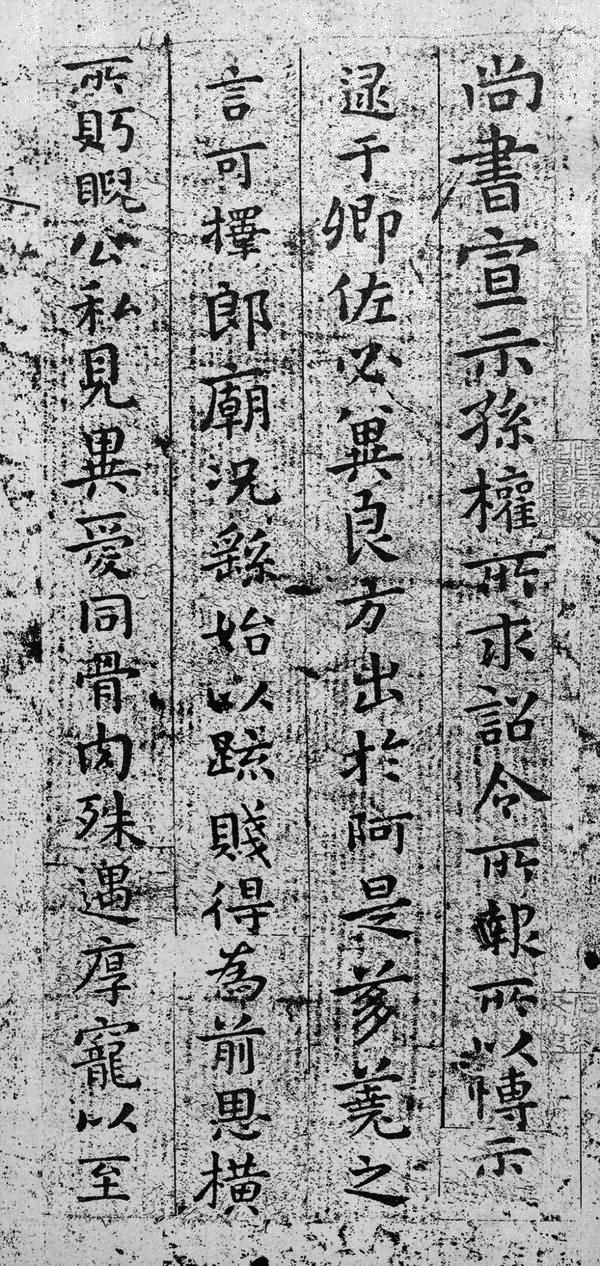 尚書宣示孫權所求詔令所報所以博示
逮于卿佐必冀良方出於阿是芻蕘之
言可擇郎廟況繇始以疏賤得為前恩橫
所䀎睨公私見異愛同骨肉殊遇厚寵以至